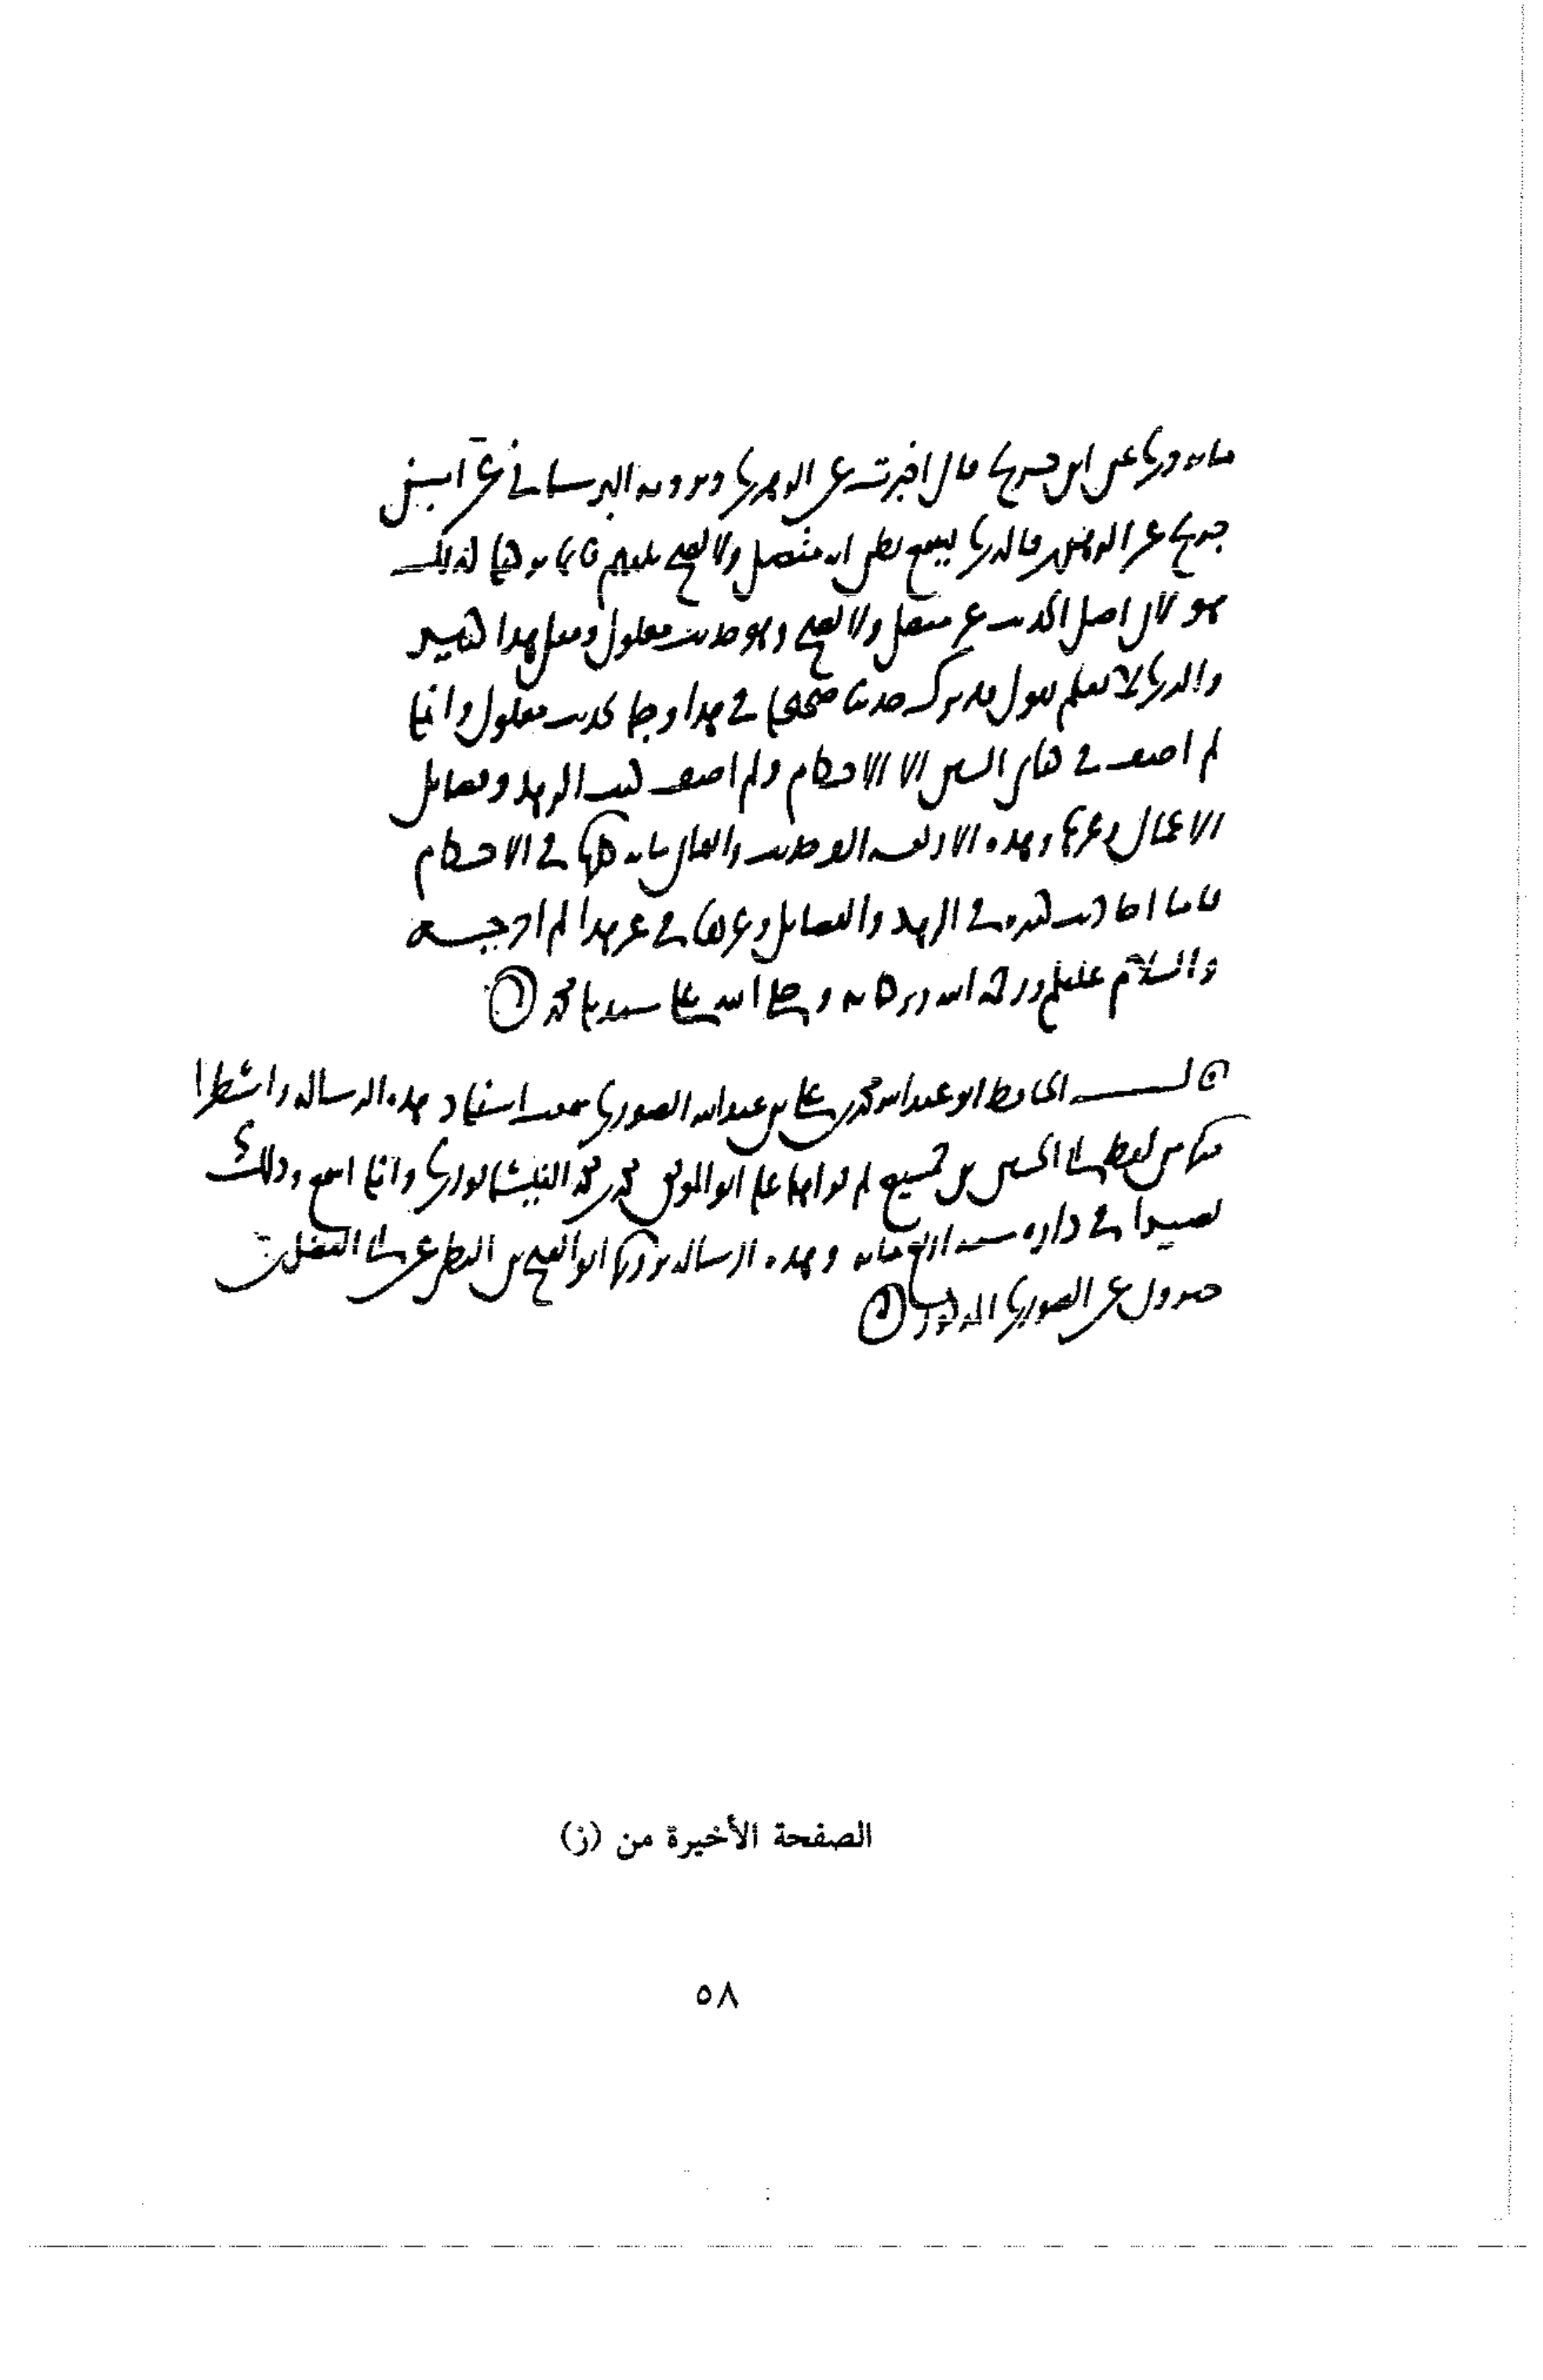 فانه روي عن ابن جريج قال اخبرت عن الزهري ويرويه البرساني عن ابن
جريج عن الزهري فالذي يسمع يظن انه متصل ولا يصح بينهم فانما تركناه لذلك
هو لان اصل الحديث غير متصل ولا يصح وهو حديث معلول ومثل هذا كثير
والذي لا يعلم يقول قد ترك حديثا صحيحا في هذا وجا بحديث معلول وانما
لم اصنف في كتاب السنن الا الاحكام ولم اصنف كتب الزهد وفضايل
الاعمال وغيرها وهذه الاربعه الف حديث والثمان مايه كلها في الاحكام
فاما احاديث كثيره في الزهد والفضايل وغيرها في غير هذا لم اخرجه
والسلام عليكم ورحمة الله وبركاته وصلى الله على سيدنا محمد
الحافظ ابو عبد الله محمد بن علي بن عبد الله الصوري سمعت اسناد هذه الرساله واشطرا
منها من لفظ الحسين بن جميع ثم قراها علي ابو الموفق محمد بن محمد النيسابوري وانا اسمع وذلك
بصيدا في داره سنه اربع مايه وهذه الرساله يرويها ابو الفتح بن البطي عن الفضل بن
خيرون عن الصوري المذكور
الصفحة الأخيرة من (ز)
٥٨